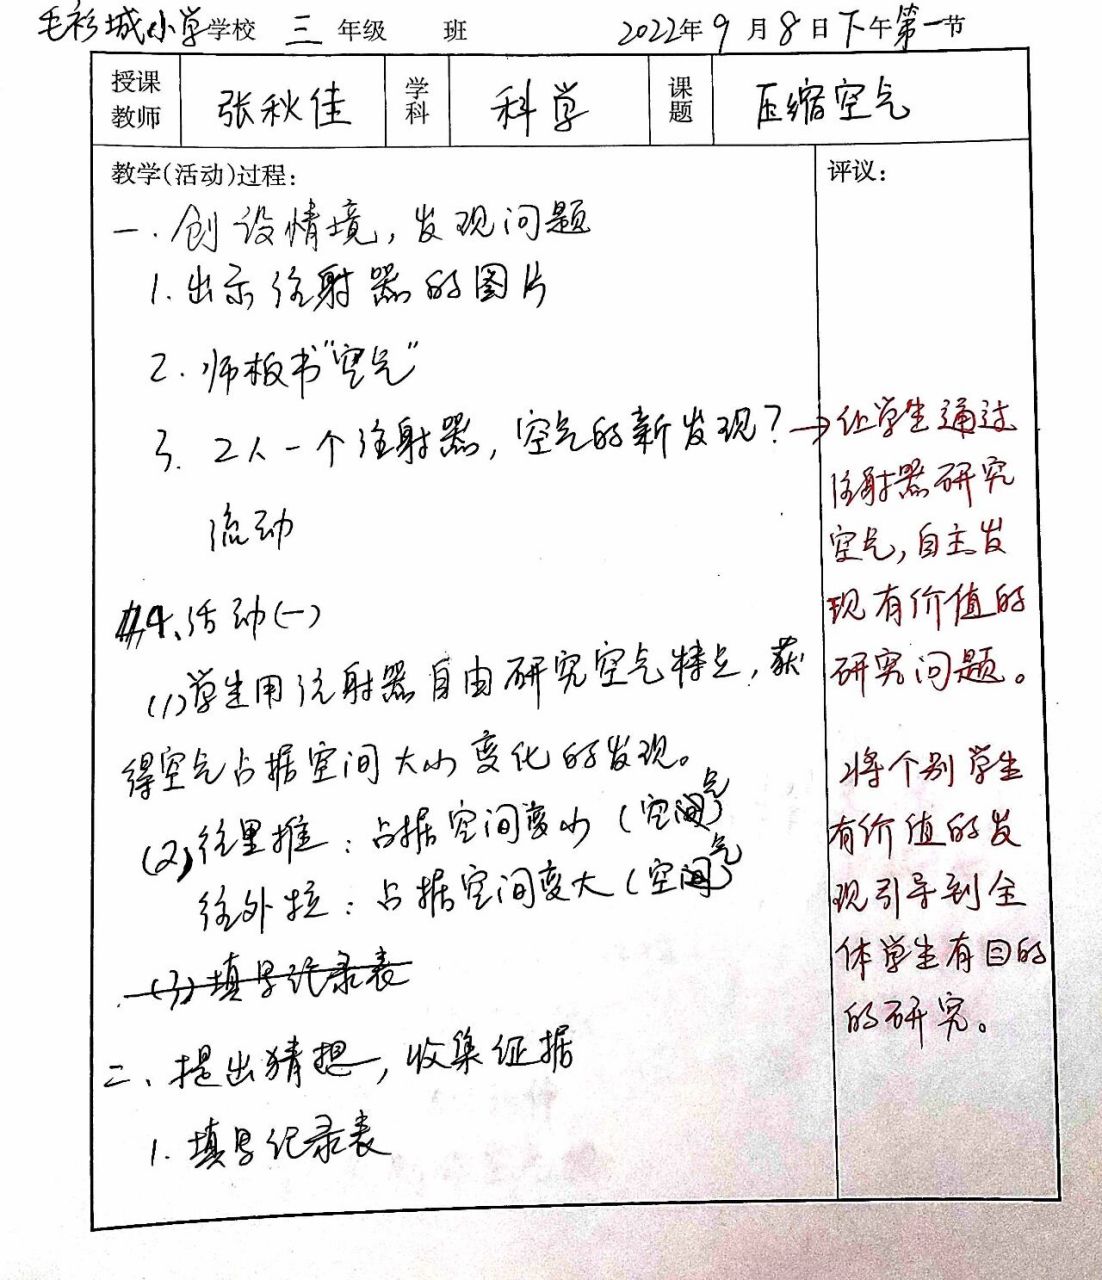 毛衫城小学学校 三 年级 班 2022年9月8日下午第一节
授课教师 张秋佳 学科 科学 课题 压缩空气
教学(活动)过程:
一.创设情境,发现问题
1.出示注射器的图片
2.师板书"空气"
3.2人一个注射器,空气的新发现?→
流动
4、活动(一)
(1)学生用注射器自由研究空气特点,获
得空气占据空间大小变化的发现。
(2)往里推:占据空间变小(空气)
往外拉:占据空间变大(空气)
(3)填写记录表
二、提出猜想,收集证据
1.填写记录表
评议:
让学生通过
注射器研究
空气,自主发
现有价值的
研究问题。
将个别学生
有价值的发
现引导到全
体学生有目的
的研究。